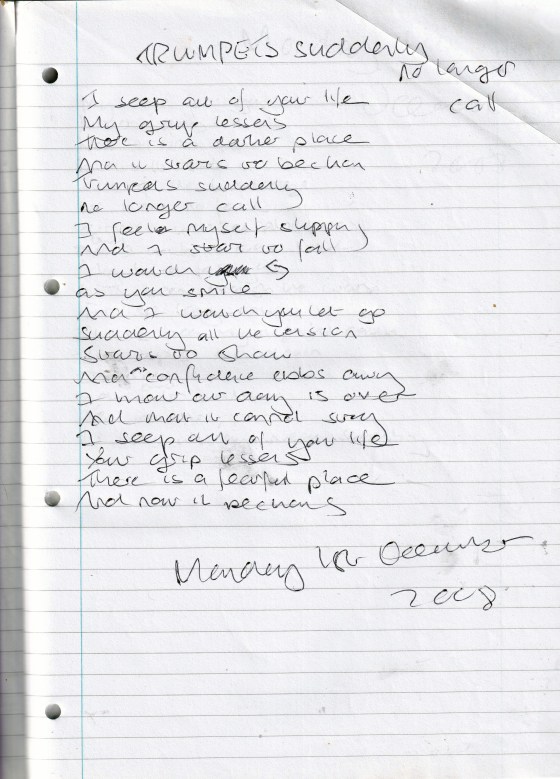 TRUMPETS suddenly
no longer
call
I seep out of your life
My grip lessens
There is a darker place
And it starts to beckon
Trumpets suddenly
no longer call
I feel myself slipping
And I start to fall
I watch
as you smile
And I watch you let go
Suddenly all the tension
Starts to show
And confidence ebbs away
I know our day is over
And that it cannot stay
I seep out of your life
Your grip lessens
There is a fearful place
And now it beckons
Monday December
2008